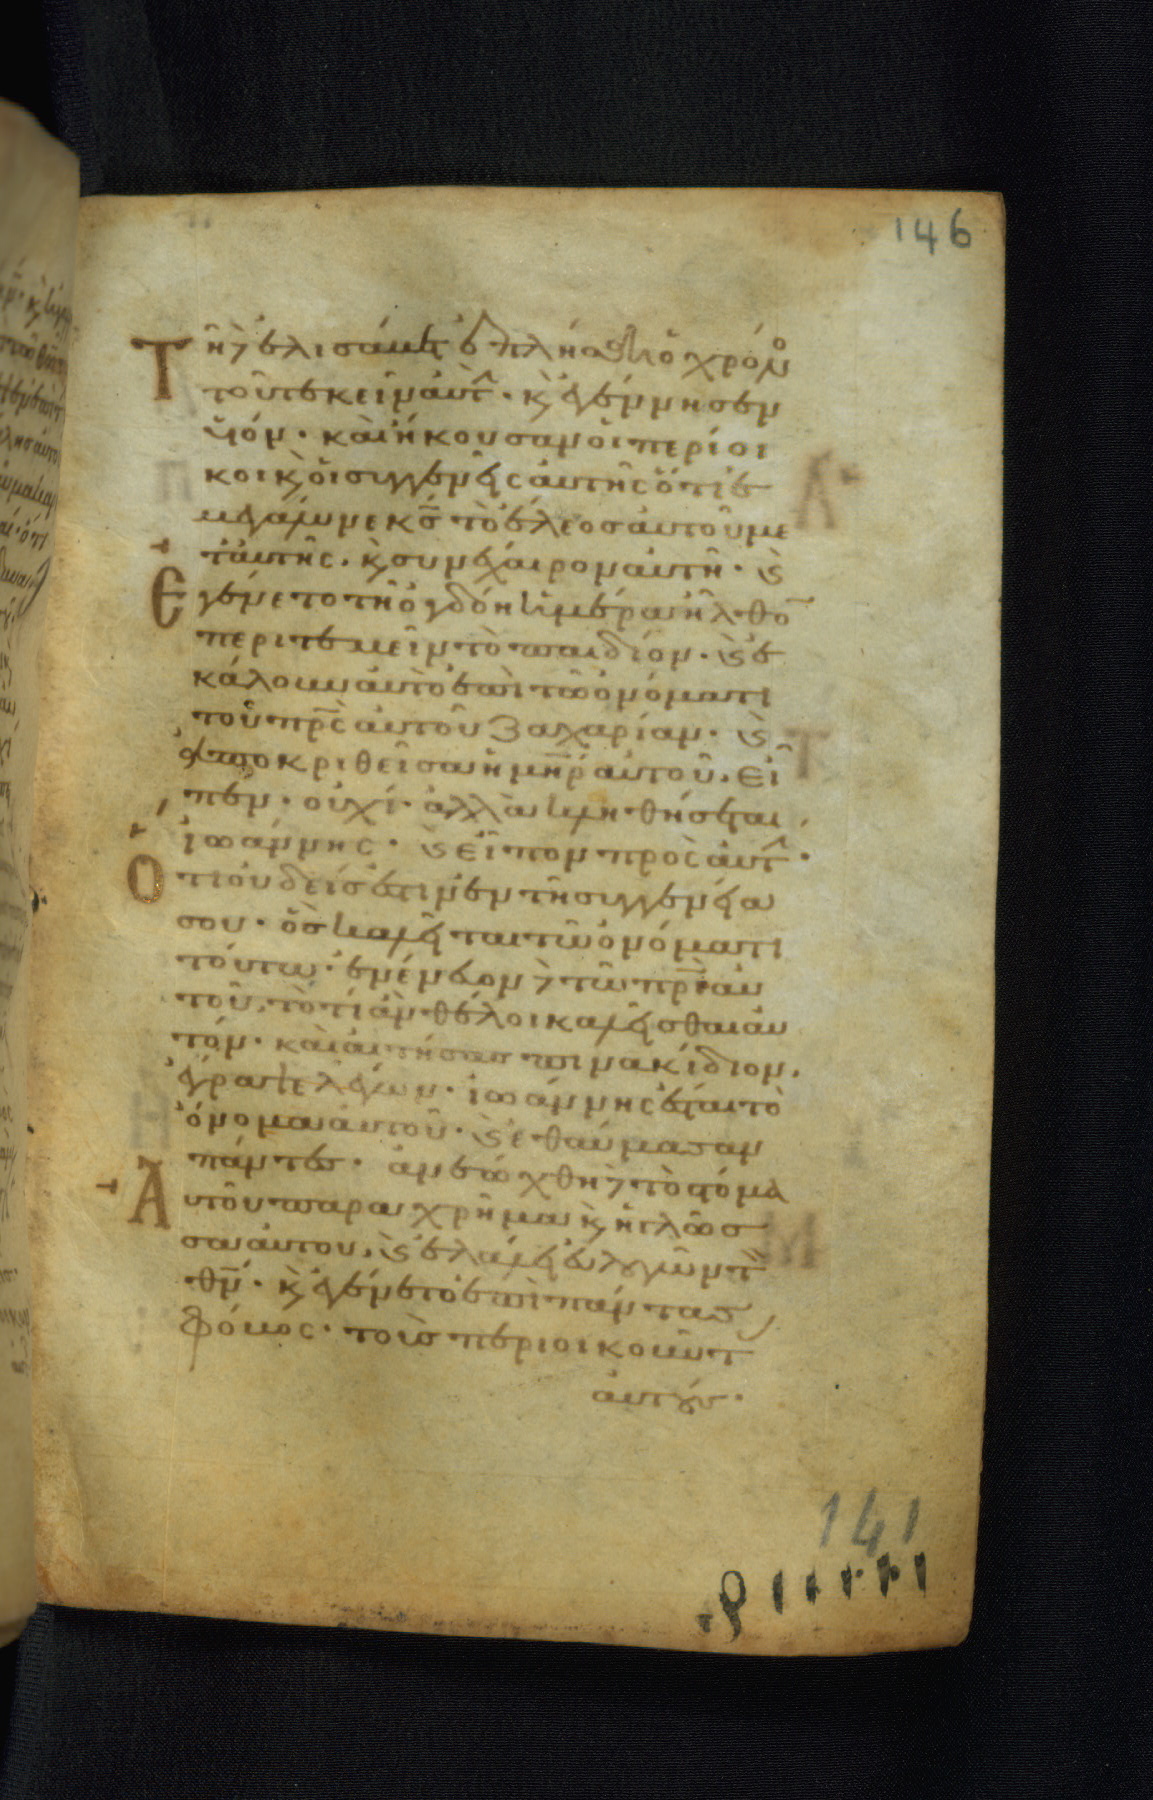 146
Τῆ δὲ ἐλισάβετ ἐπλήσθη ὁ χρόνος
τοῦ τεκεῖν αὐτὴν · κ(αὶ) ἐγέννησεν
υἱόν · καὶ ἤκουσαν οἱ περίοι
κοι κ(αὶ) οἱ συγγενεῖς αὐτῆς ὅτι ἐ
μεγάλυνε κ̅ς̅ τὸ ἔλεος αὐτοῦ με
τ' αὐτῆς · κ(αὶ) συνέχαιρον αὐτῆ · κ(αὶ)
Ἐγένετο τῆ ὀγδόη ἡμέρα ἦλθον
περιτεμεῖν τὸ παιδίον · κ(αὶ) ἐ
κάλουν αὐτὸ ἐπὶ τῶ ὀνόματι
τοῦ πρ̅ς̅ αὐτοῦ Ζαχαρίαν · κ(αὶ)
ἀποκριθεῖσα ἡ μη̅ρ̅ αὐτοῦ · εἶ
πεν · οὐχί · ἀλλὰ κληθήσεται
ἰωάννης · κ(αὶ) εἶπον πρὸς αὐτὴν ·
Ὅτι οὐδείς ἐστιν ἐν τῆ συγγενεία
σου · ὃς καλεῖται τῶ ὀνόματι
τούτω · ἐνένευον δὲ τῶ πρ̅ι̅ αὐ
τοῦ · τὸ τί ἂν θέλοι καλεῖσθαι αὐ
τόν · καὶ αἰτήσας πινακίδιον ·
ἔγραψε λέγων · ἰωάννης ἐσται τὸ
ὄνομα αὐτοῦ · κ(αὶ) ἐθαύμασαν
πάντες · ἀνεώχθη δὲ τὸ στόμα
Αὐτοῦ παραχρῆμα κ(αὶ) ἡ γλῶσ
σα αὐτου · κ(αὶ) ἐλάλει εὐλογῶν τὸν
θ̅ν̅ · κ(αὶ) ἐγένετο ἐπὶ πάντας
φόβος · τοὺς περιοικοῦντας
αὐτούς ·
141